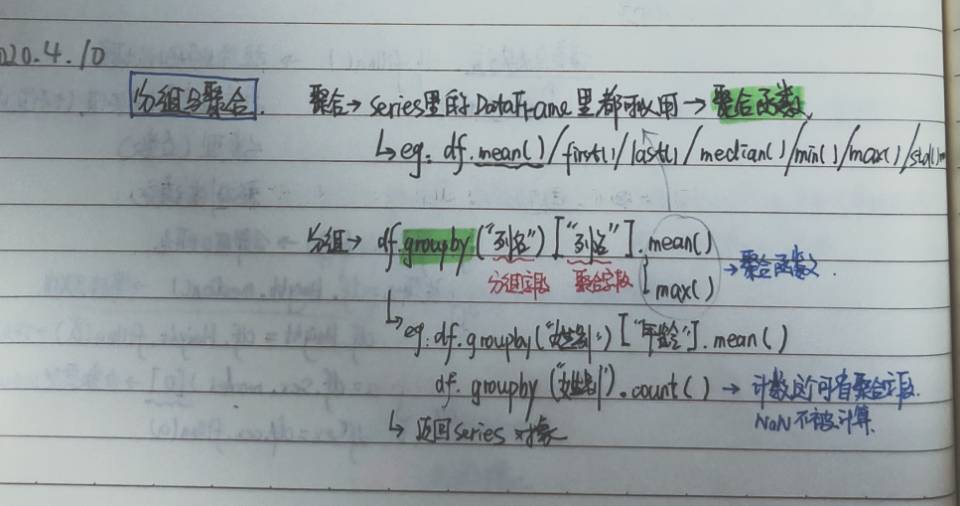 020.4.10
分组与聚合. 聚合→series里的DataFrame里都可以用→聚合函数
↳eg: df.mean()/first()/last()/median()/min()/max()/std()
分组→ df.groupby("列名")["列名"].mean()
max()
→聚合函数.
分组字段 聚合字段
↳eg: df.groupby("性别")["年龄"].mean()
df.groupby("性别").count() → 计数时可省聚合字段.
NaN不被计算.
↳返回series对象